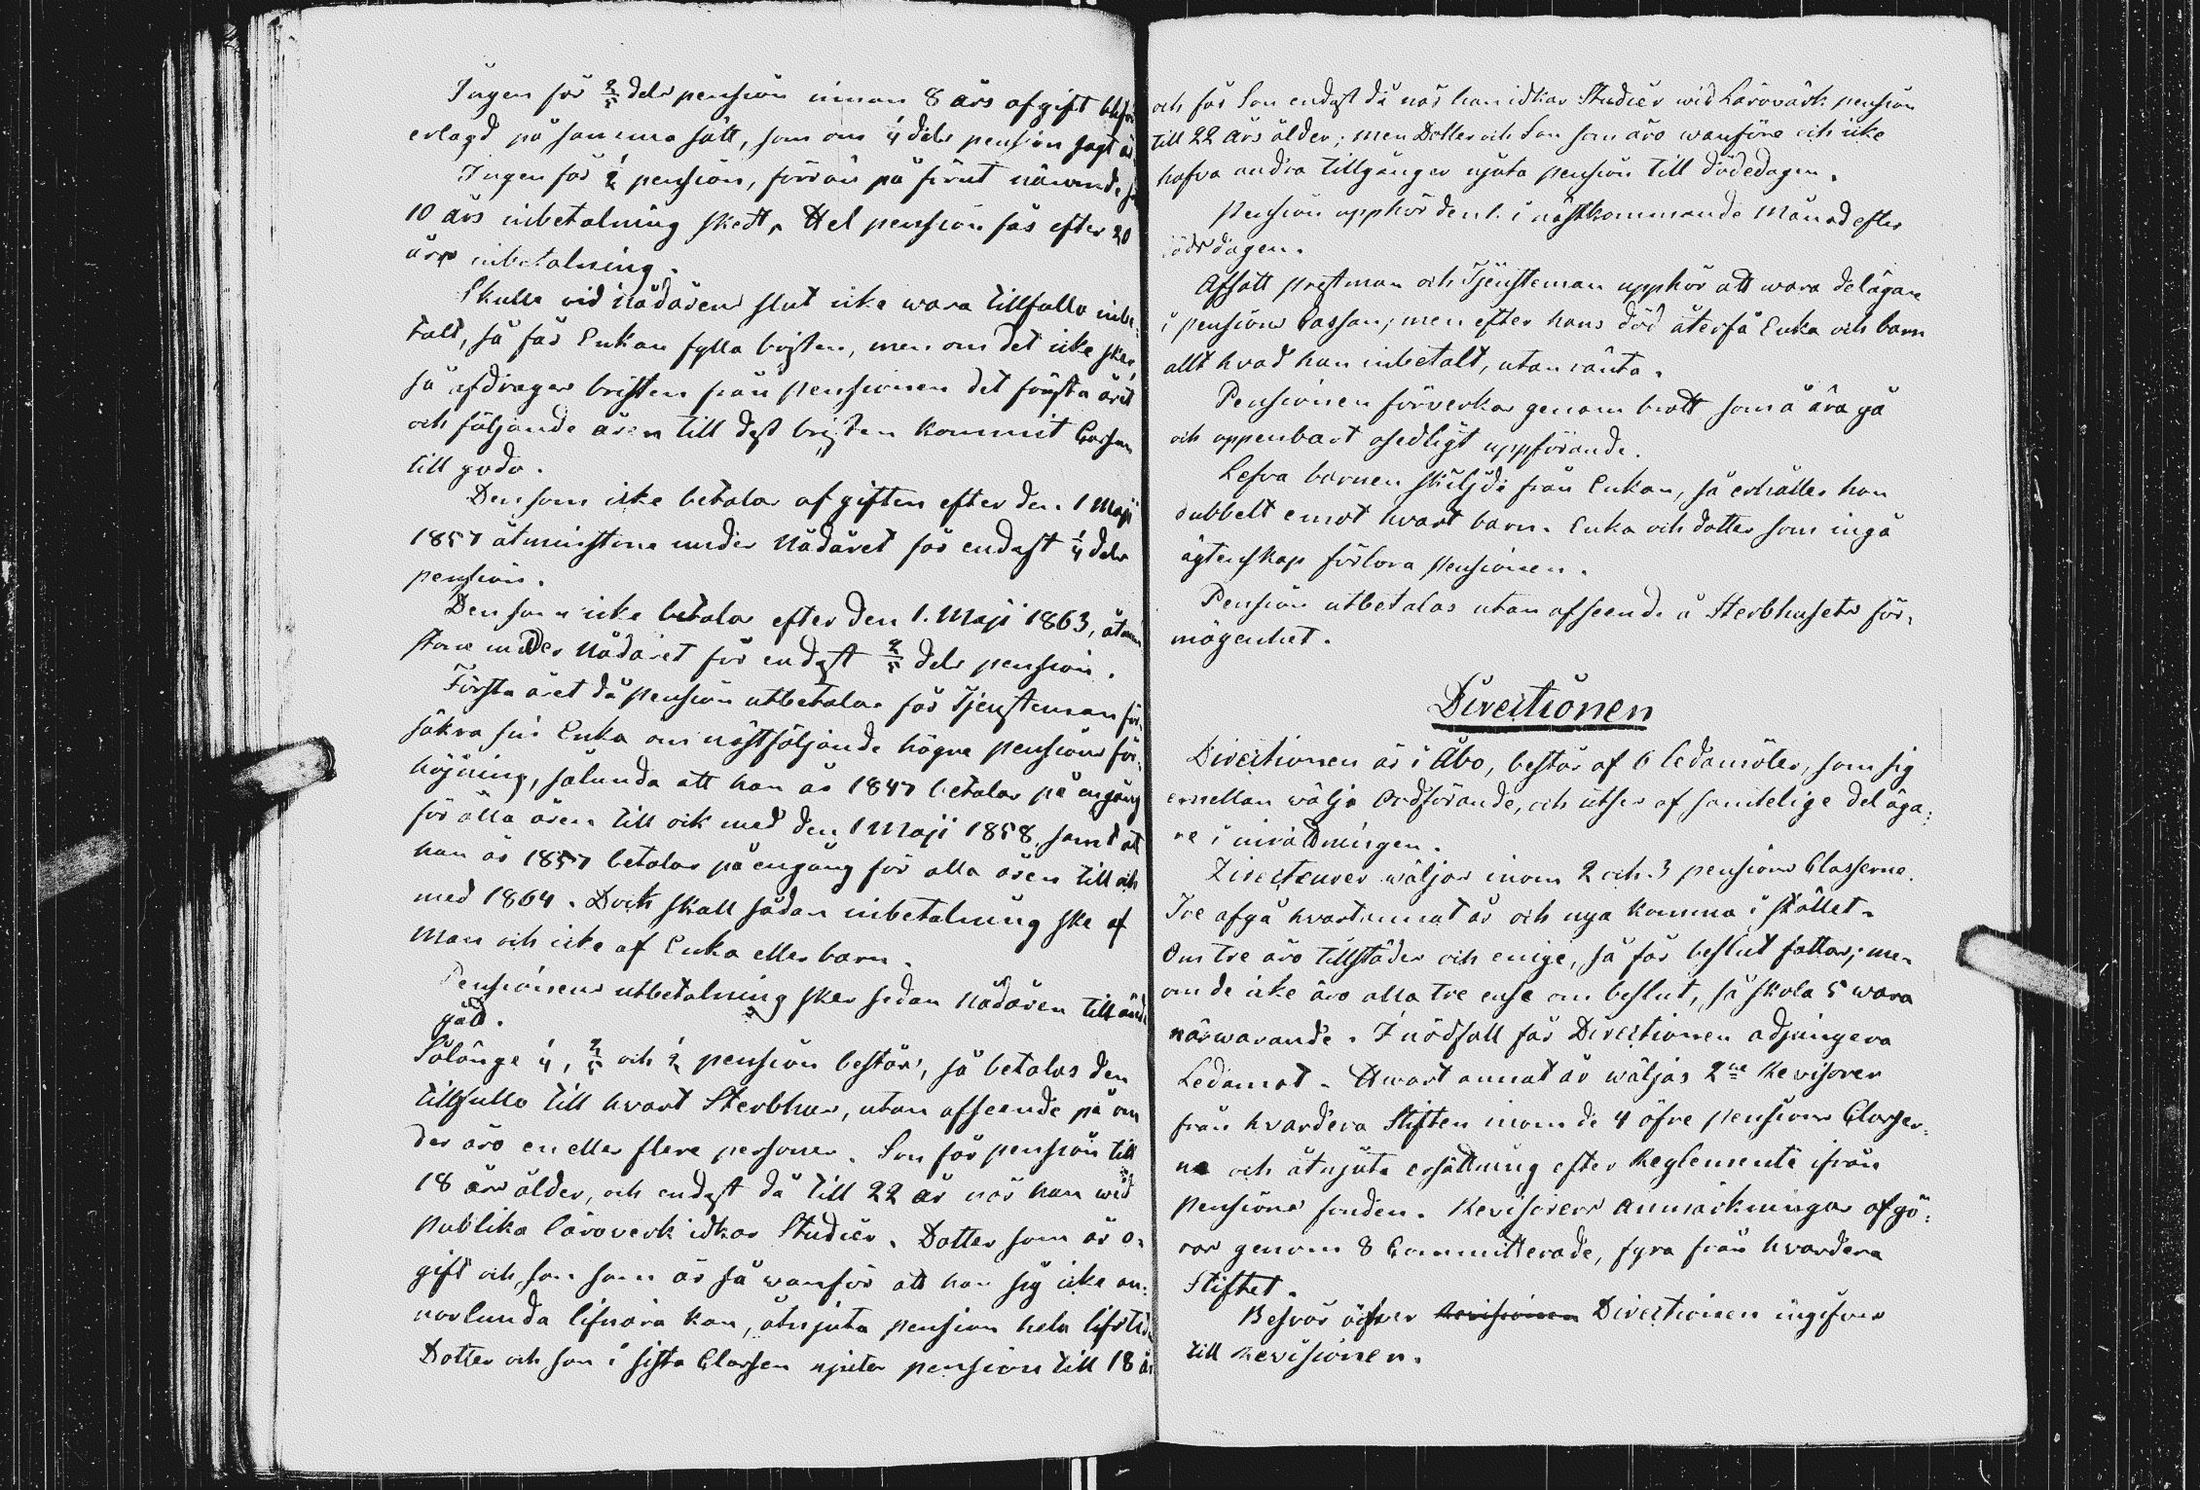 Ingen får 2/5 dels pension innan 8 års afgift blifvit
erlagd på samma sätt, som om 1/4 dels pension sagt är.
Ingen får 1/2 pension, förrän på förut nämnde sätt
10 års inbetalning skedt. Hel pension fås efter 20
års inbetalning.
Skulle vid Nådårens slut icke wara tillfullo inbe-
talt, så får Enkan fylla bristen, men om det icke sker,
så afdrages bristen från pensionen det första året
och följande åren till dess bristen kommit Cassan
till godo.
Den som icke betalar afgiften efter den 1 Maji
1857 åtminstone under Nådåret får endast 1/4 dels
pension.
Den som icke betalar efter den 1. Maji 1863, åtmin
stone under Nådåret får endast 2/5 dels pension.
Första året då pension utbetalas får Tjensteman för-
säkra sin Enka om nästföljande högre pensions för-
höjning, sålunda att han år 1847 betalar på en gång
för alla åren till och med den 1 Maji 1858. samt att
han år 1857 betalar på engång för alla åren till och
med 1864. Dock skall sådan inbetalning ske af
Man och icke af Enka eller barn.
Pensionens utbetalning sker sedan Nådåren tillända
gått.
Sålänge 1/4, 2/5 och 1/2 pension består, så betalas den
tillfullo till hvart Sterbhus, utan afseende på om
der äro en eller flere personer. Son får pension till
18 års ålder, och endast då till 22 år när han wid
publika läroverk idkar Studier. Dotter som är o-
gift och son som är så wanför att han sig icke an-
norlunda lifnära kan, åtnjuta pension hela lifstid.
Dotter och son i sista Classen njuter pension till 18 år
och får Son endast då när han idkar Studier wid Lärovärk pension
till 22 års ålder; men Dotter och Son som äro wanföre och icke
hafva andra tillgångar njuta pension till dödedagen.
Pension upphör den 1. i nästkommande Månad efter
dödsdagen.
Afsatt prestman och Tjensteman upphör att wara delägare
i pensions Cassan; men efter hans död återfå Enka och barn
allt hvad han inbetalt, utan ränta.
Pensionen förverkas genom brott som å ära gå
och oppenbart osedligt uppförande.
Lefva barnen skiljde från Enkan, så erhåller hon
dubbelt emot hvart barn. Enka och dotter som ingå
ägtenskap förlora Pensionen.
Pension utbetalas utan afseende å Sterbhusets för-
mögenhet.
Directionen
Directionen är i Åbo, består af 6 ledamöter, som sig
emellan wälja Ordförande, och utses af samtelige deläga-
re i inrättningen.
Directeurer wäljas inom 2 och 3 pensions Classerne.
Tre afgå hvartannat år och nya komma i stället.
Om tre äro tillstädes och enige, så får beslut fattas; men
om de icke äro alla tre ense om beslut, så skola 5 wara
närwarande. I nödfall får Directionen adjungera
Ledamot. Hwart annat år wäljas 2ne Revisorer
från hvardera Stiften inom de 4 öfre pensions Classer-
ne och åtnjuta ersättning efter Reglemente ifrån
Pensions fonden. Revisorers anmärkningar afgö-
ras genom 8 Committerade, fyra från hvardera
Stiftet.
Besvär öfver Revisionen Directionen ingifves
till Revisionen.